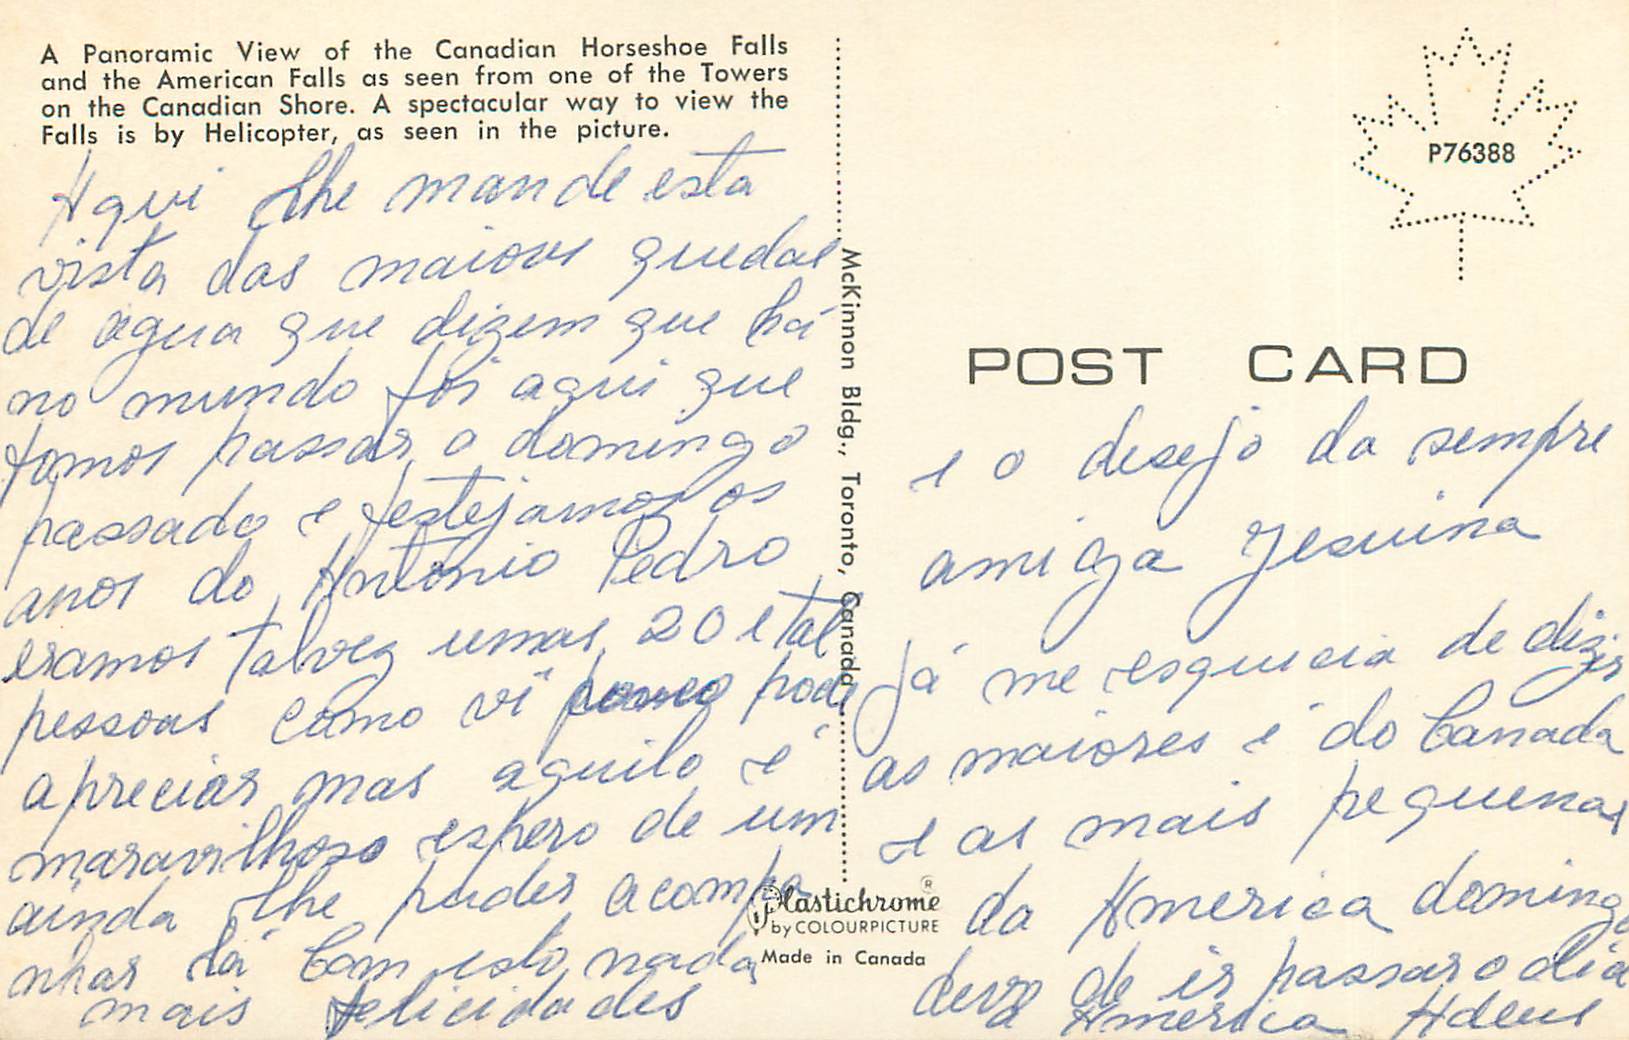 A Panoramic View of the Canadian Horseshoe Falls
and the American Falls as seen from one of the Towers
on the Canadian Shore. A spectacular way to view the
Falls is by Helicopter, as seen in the picture.
Aqui lhe mande esta
vista das maiores quedas
de agua que dizem que há
no mundo foi aqui que
fomos passar o domingo
passado e festejamos os
anos do António Pedro
eramos talvez umas 20 e tal
pessoas como vi pouco pode
apreciar mas aquilo é
maravilhoso espero de um
ainda lhe puder acompa
nhar lá com isto nada
mais felicidades
McKinnon Bldg., Toronto, Canada
Plastichrome®
by COLOURPICTURE
Made in Canada
P76388
POST CARD
e o desejo da sempre
amiga Jesuina
Já me esquecia de dizer
as maiores é do Canada
e as mais pequenas
da America domingo
devo de ir passar o dia
a America Adeus